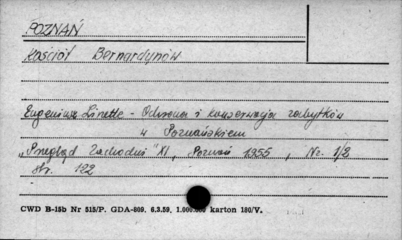 POZNAŃ
Kościół Bernardynów
Eugeniusz Linette - Ochrona i konserwacja zabytków
w Poznańskiem
"Przegląd Zachodni" XI, Poznań 1955, Nr. 1/2
str. 122
CWD B-15b Nr 515/P. GDA-809. 6.3.59. 1.000.000 karton 180/V.